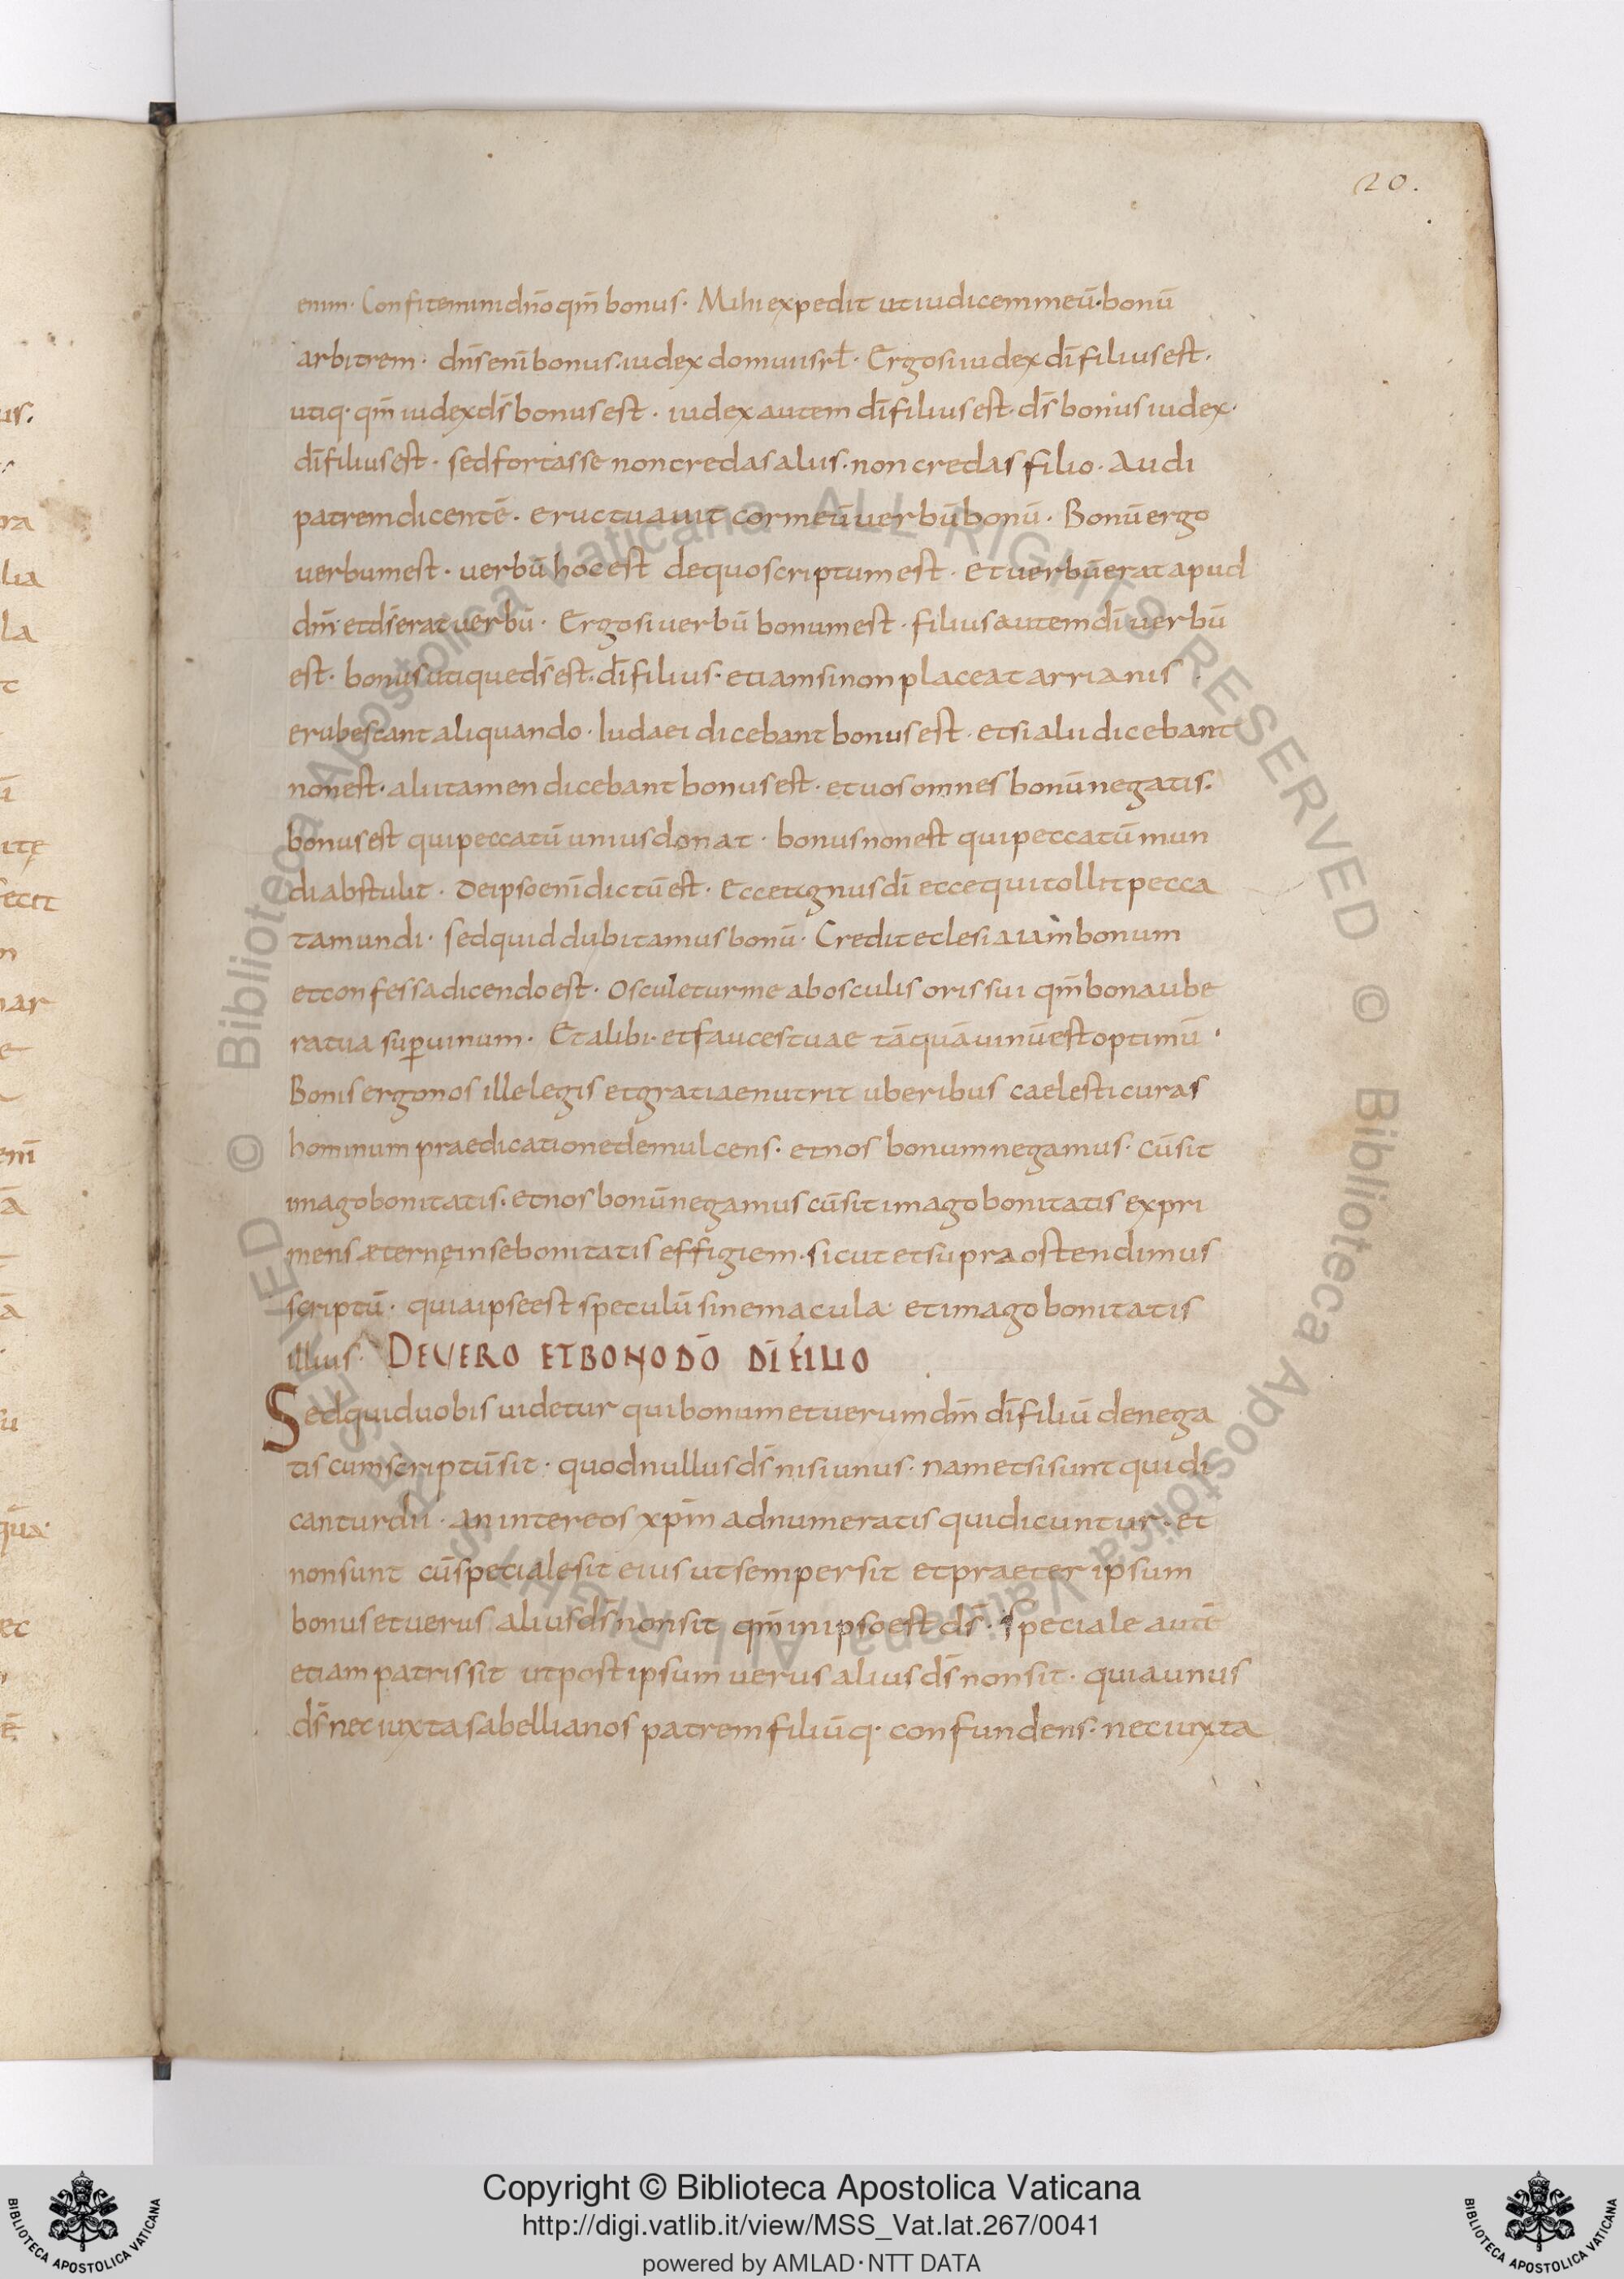 20.
enim · Confitemini dn̄o qm̄ bonus · Mihi expedit ut iudicem meū · bonū
arbitrem · dn̄s enī bonus · iudex domui isrł · Ergo si iudex dī filius est ·
utiq · qm̄ iudex ds̄ bonus est · iudex autem dī filius est · ds̄ bonus iudex ·
dī filius est · sed fortasse non credas aliis · non credas filio · Audi
patrem dicentē · eructuauit cor meū uerbū bonū · Bonū ergo
uerbum est · uerbū hoc est de quo scriptum est · et uerbū erat apud
dm̄ · et ds̄ erat uerbū · Ergo si uerbū bonum est · filius autem dī uerbū
est · bonus utique ds̄ est · dī filius · etiam si non placeat arrianis ·
erubescant aliquando · Iudaei dicebant bonus est · etsi alii dicebant
non est · alii tamen dicebant bonus est · et uos omnes bonū negatis ·
bonus est qui peccatū unius donat · bonus non est qui peccatū mun
di abstulit · De ipso enī dictū est · Ecce agnus dī ecce qui tollit pecca
ta mundi · sed quid dubitamus bonū · Credit eclesia iam bonum
et confessa dicendo est · Osculetur me ab osculis oris sui qm̄ bona ube
ra tua sup̄ uinum · Et alibi · et fauces tuae tāquā uinū est optimū ·
Bonis ergo nos ille legis et gratiae nutrit uberibus caelesti curas
hominum praedicatione demulcens · et nos bonum negamus · cū sit
imago bonitatis · et nos bonū negamus cū sit imago bonitatis expri
mens æternę in se bonitatis effigiem · sicut et supra ostendimus
scriptū · quia ipse est speculū sine macula · et imago bonitatis
illius · DE UERO ET BONO DŌ DĪ FILIO
Sed quid uobis uidetur qui bonum et uerum dm̄ dī filiū denega
tis cum scriptū sit · quod nullus ds̄ nisi unus · nam etsi sunt qui di
cantur dii · an inter eos xp̄m adnumeratis qui dicuntur · et
non sunt cū speciale sit eius ut semper sit et praeter ipsum
bonus et uerus alius ds̄ non sit qm̄ in ipso est ds̄ · speciale autē
etiam patris sit ut post ipsum uerus alius ds̄ non sit · quia unus
ds̄ nec iuxta sabellianos patrem filiūq · confundens · nec iuxta
Copyright © Biblioteca Apostolica Vaticana
http://digi.vatlib.it/view/MSS_Vat.lat.267/0041
powered by AMLAD · NTT DATA
BIBLIOTECA APOSTOLICA VATICANA
BIBLIOTECA APOSTOLICA VATICANA
© Biblioteca Apostolica Vaticana ALL RIGHTS RESERVED © Biblioteca Apostolica Vaticana ALL RIGHTS RESERVED